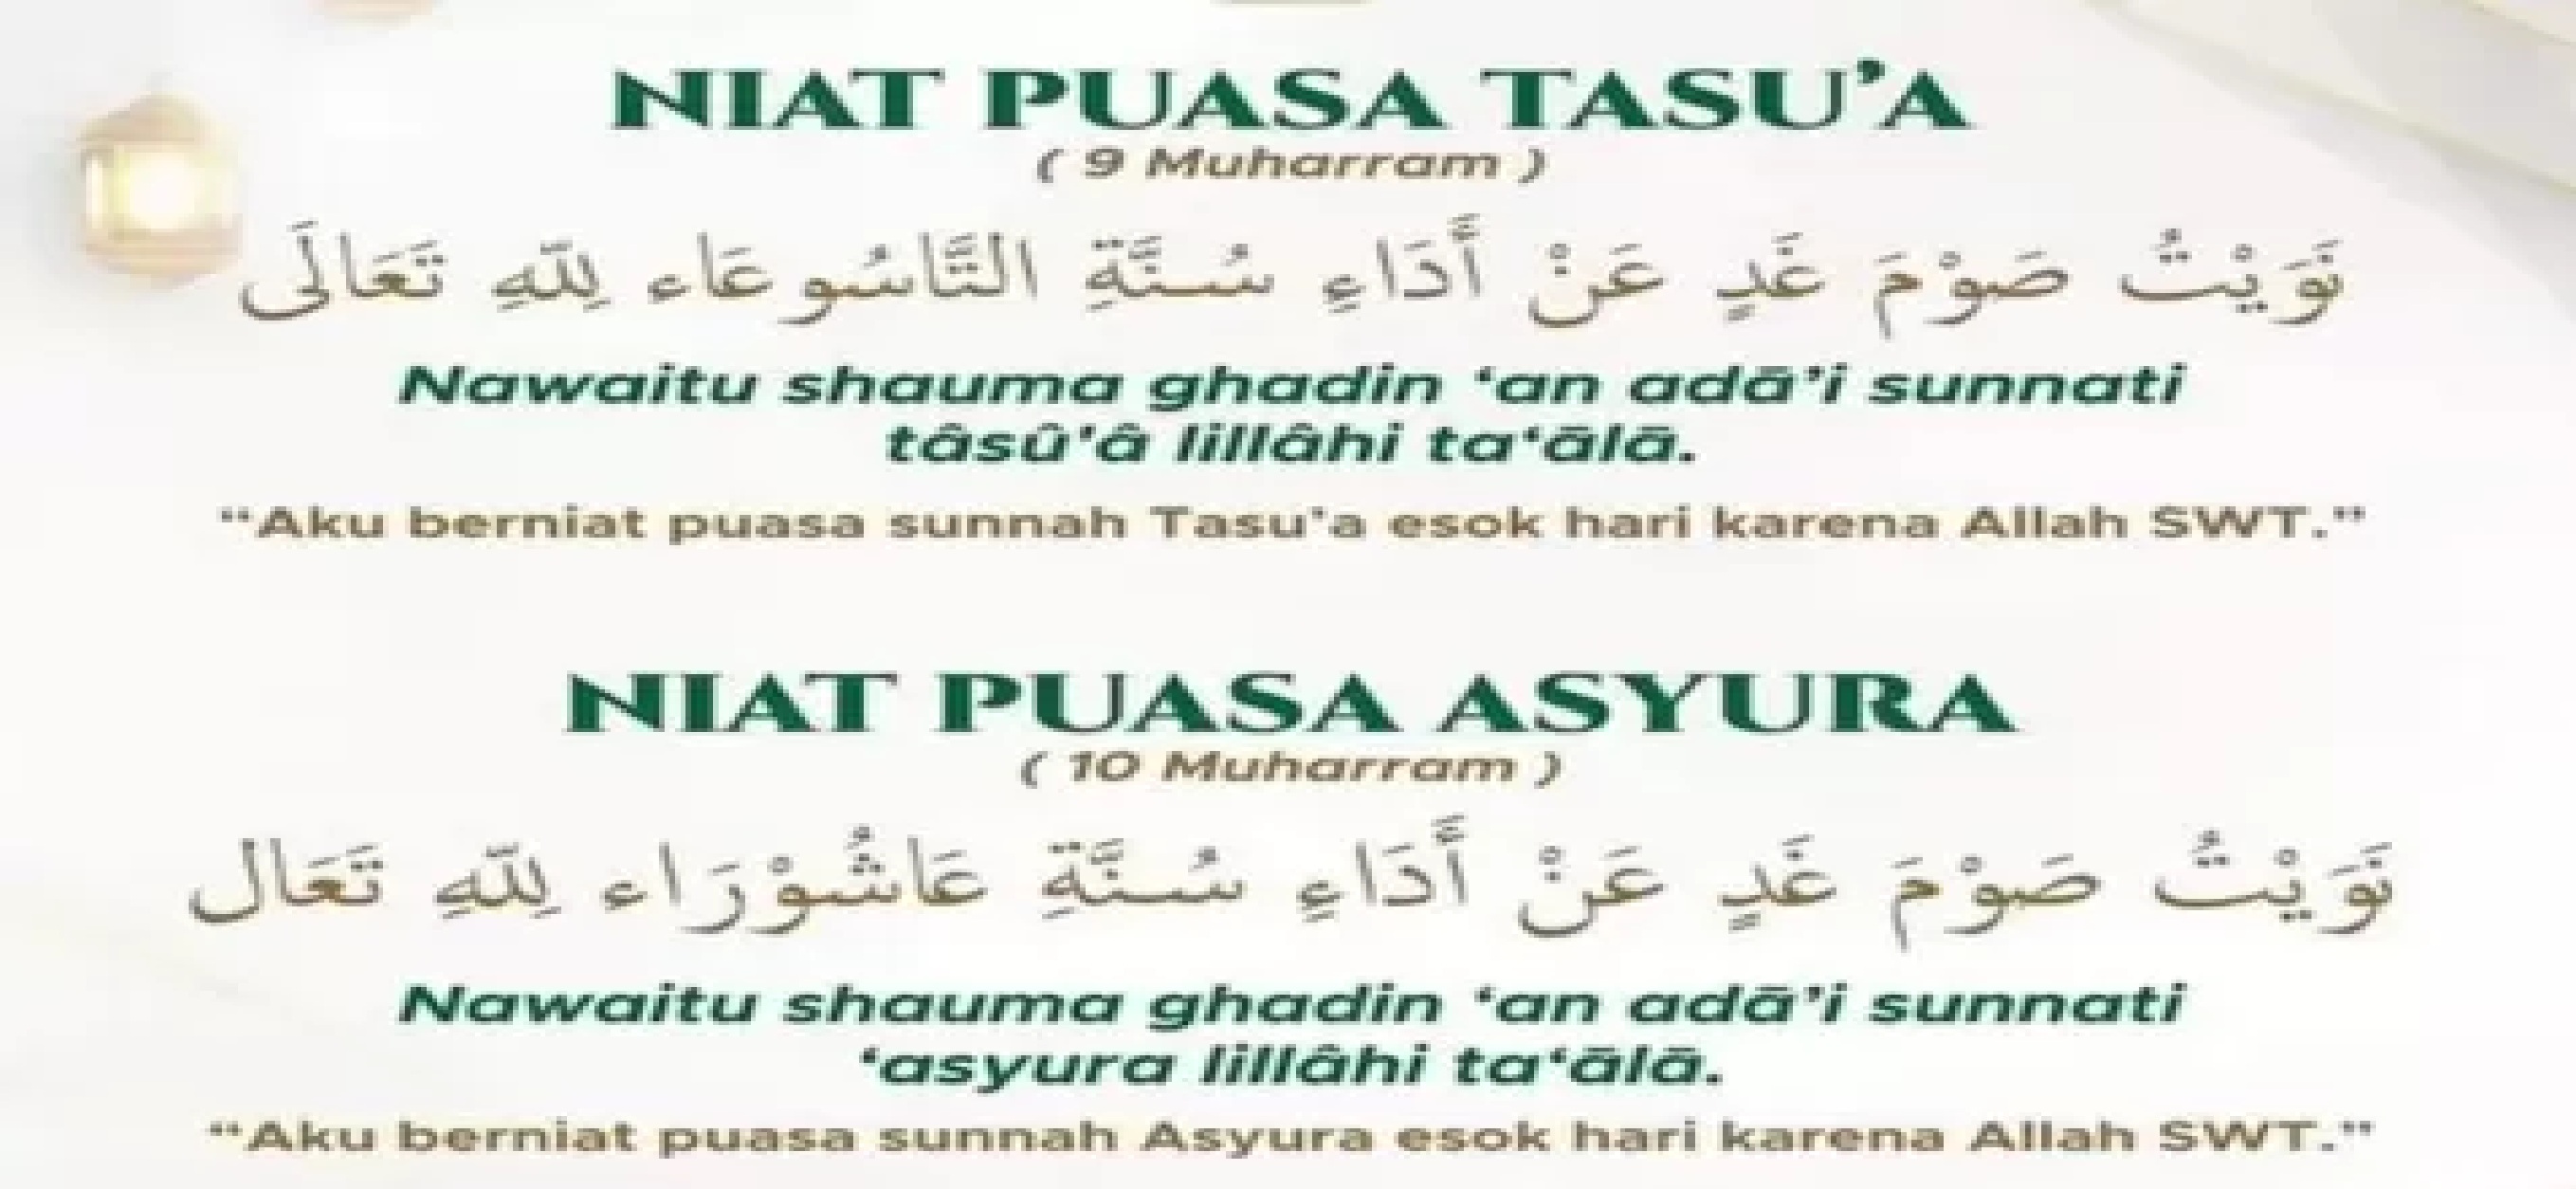 NIAT PUASA TASU’A
( 9 Muharram )
نَوَيْتُ صَوْمَ غَدٍ عَنْ أَدَاءِ سُنَّةِ التَّاسُوعَاء لِلّٰهِ تَعَالَى
Nawaitu shauma ghadin ‘an adā’i sunnati
tâsû’â lillâhi ta‘ālā.
“Aku berniat puasa sunnah Tasu’a esok hari karena Allah SWT.”
NIAT PUASA ASYURA
( 10 Muharram )
نَوَيْتُ صَوْمَ غَدٍ عَنْ أَدَاءِ سُنَّةِ عَاشُوْرَاء لِلّٰهِ تَعَال
Nawaitu shauma ghadin ‘an adā’i sunnati
‘asyura lillâhi ta‘ālā.
“Aku berniat puasa sunnah Asyura esok hari karena Allah SWT.”